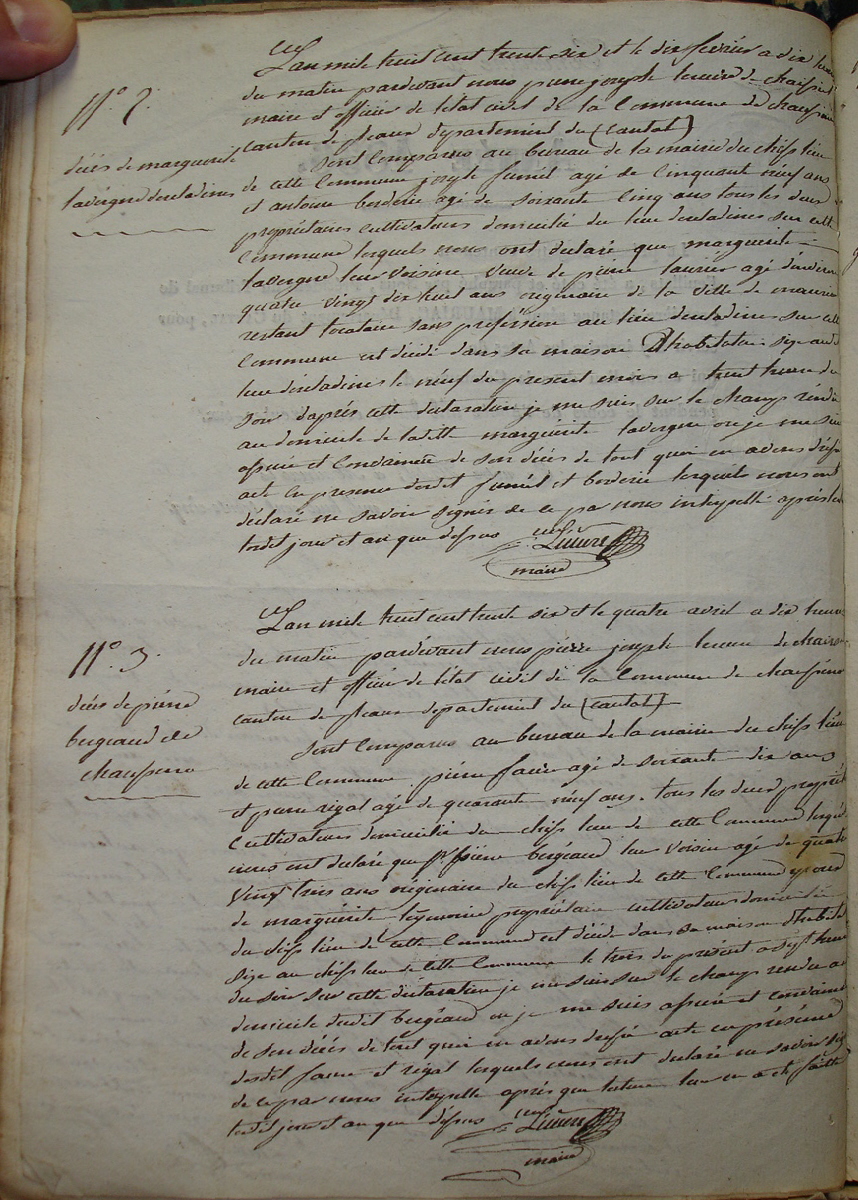 N° 2.
décès de marguerite
lavergne d'escladines
L'an mil huit cent trente six et le dix février a dix heures
du matin pardevant nous pierre joseph
maire et officier de l'état civil de la Commune de chaussenac
canton de pleaux département du (cantal)
Sont Comparus au bureau de la mairie du cheff lieu
de cette Commune joseph fumel agé de Cinquante neuf ans
et antoine borderie agé de soixante Cinq ans tous les deux
propriétaires Cultivateurs domiciliés du lieu d'escladines sur cette
Commune lesquels nous ont déclaré que marguerite
lavergne leur voisine veuve de pierre laurier agé d'environ
quatre vingt dix huit ans originaire de la ville de mauriac
restant locataire sans profession au lieu d'escladines sur cette
Commune est décédé dans sa maison D'habitation size audit
lieu d'escladines le neuf du présent mois a huit heures du
soir d'après cette déclaration je me suis sur le champ rendu
au domicile de ladite marguerite lavergne ou je me suis
assuré et Convaincu de son décès de tout quoi en avons dressé
acte en presence desdit fumel et borderie lesquels nous ont
déclaré ne savoir signer de ce par nous interpellé après lec
lesdit jour et an que dessus
maire
N° 3.
décès de pierre
bergeaud de
chaussenac
L'an mil huit cent trente six et le quatre avril a dix heures
du matin pardevant nous pierre joseph
maire et officier de l'état civil de la Commune de chaussenac
canton de pleaux departement du (cantal)
Sont Comparus au bureau de la mairie du cheff lieu
de cette Commune pierre faure agé de soixante dix ans
et pierre rigal agé de quarante neuf ans. tous les deux propriét
Cultivateurs domicilié du cheff lieu de cette Commune lesquels
nous ont déclaré que pierre bergeaud leur voisin agé de quatre
vingt trois ans originaire du cheff lieu de cette Commune epoux
de marguerite propriétaire cultivateur domicilié
du cheff lieu de cette Commune est décédé dans sa maison d'habitat
size au cheff lieu de cette Commune le trois du présent a sept heures
du soir sur cette déclaration je me suis sur le champ rendu au
domicile dudit bergeaud ou je me suis assuré et convaincu
de son décès de tout quoi en avons dressé acte en présence
desdit faure et rigal lesquels nous ont declaré ne savoir sig
de ce par nous interpellé après que lecture leur en a été faitte
lesdit jour et an que dessus
maire